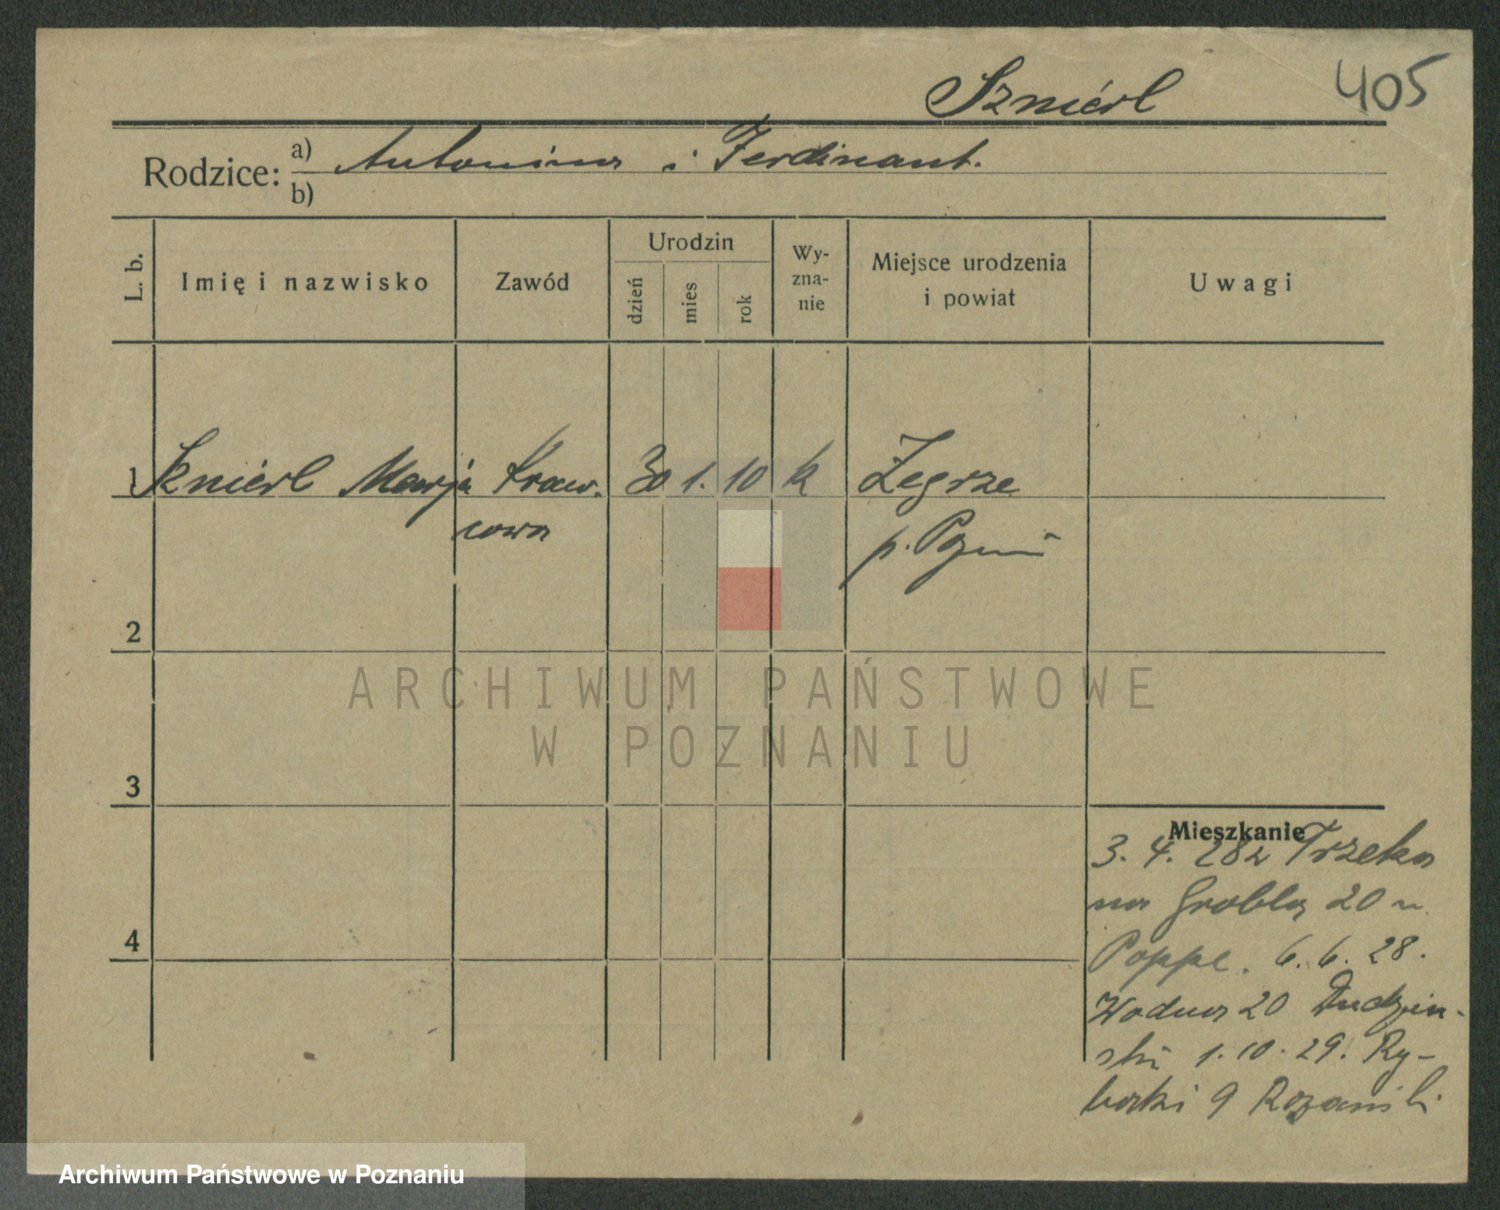 Sznierl 405
Rodzice: a) Antonina i Ferdinant.
b)
L. b. Imię i nazwisko Zawód Urodzin dzień mies rok Wy-zna-nie Miejsce urodzenia i powiat Uwagi
1 Sznierl Marja Kraw- 30 1. 10 k Zegrze
cowa p. Pozn
2
ARCHIWUM PAŃSTWOWE
W POZNANIU
3
Mieszkanie
3. 4. 28 z Trzeka
na Grobla 20 u
4
Poppe. 6. 6. 28.
Wodna 20 Dudzin-
ski 1. 10. 29. Ry-
baki 9
Archiwum Państwowe w Poznaniu